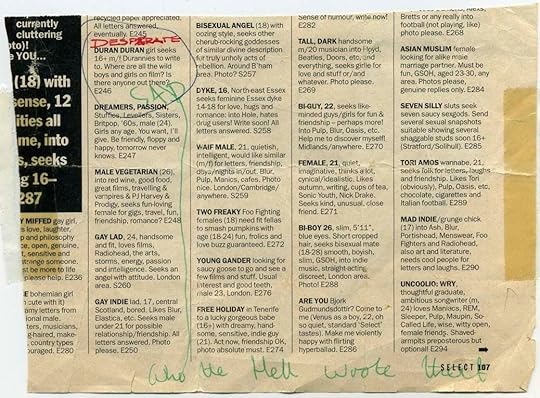 currently
cluttering
oto)!
e YOU...
(18) with
ense, 12
ities all
me, into
s, seeks
g 16–
287
Y MIFFED gay girl,
s love, laughter,
p and philosophy
e, open, genuine,
t, sensitive and
trange someone.
t be more to life
please help. E236
E bohemian girl
cute with it)
my letters from
ional male.
ters, musicians,
g-haired, make-
, country types
couraged. E280
recycled paper appreciated.
All letters answered,
eventually. E245
DESPERATE
DURAN DURAN girl seeks
16+ m/f Durannies to write.
Where are all the wild
boys and girls on film? Is
there anyone out there?
E246
DREAMERS, PASSION,
Stuffies, Levellers, Sisters,
Britpop, '60s, male (24).
Girls any age. You want, I'll
give. Be friendly, floppy and
happy, tomorrow never
knows. E247
MALE VEGETARIAN (26),
into red wine, good food,
great films, travelling &
vampires & PJ Harvey &
Prodigy, seeks fun-loving
female for gigs, travel, fun,
friendship, romance? E248
GAY LAD, 24, handsome
and fit, loves films,
Radiohead, the arts,
storms, energy, passion
and intelligence. Seeks an
angel with attitude. London
area. S260
GAY INDIE lad, 17, central
Scotland, bored. Likes Blur,
Elastica, etc. Seeks male
under 21 for possible
relationship/friendship. All
letters answered. Photo
please. E250
BISEXUAL ANGEL (18) with
oozing style, seeks other
cherub-rocking goddesses
of similar divine description
for truly unholy acts of
rebellion. Around B'ham
area. Photo? S257
DYKE, 16, North-east Essex
seeks feminine Essex dyke
14-18 for love, hugs and
romance: into Hole, hates
drug users! Write soon! All
letters answered. S258
WAIF MALE, 21, quietish,
intelligent, would like similar
(m/f) for letters, friendship,
days/nights in/out. Blur,
Pulp, Manics, cafes. Photo
nice. London/Cambridge/
anywhere. S259
TWO FREAKY Foo Fighting
females (18) need fit fellas
to smash pumpkins with
age (18-24) fun, frolics and
love buzz guaranteed. E272
YOUNG GANDER looking for
saucy goose to go and see a
few films and stuff. Usual
interest and good teeth,
male 23, London. E276
FREE HOLIDAY in Tenerife
to a lucky gorgeous babe
(16+) with dreamy, hand-
some, sensitive, indie guy
(21). Act now, friendship OK,
photo absolute must. E274
Sense of humour, write now!
E282
TALL, DARK handsome
m/20 musician into Floyd,
Beatles, Doors, etc. and
everything, seeks girlie for
love and stuff or/and
whatever. Photo please.
E269
BI-GUY, 22, seeks like-
minded guys/girls for fun &
friendship – perhaps more!
Into Pulp, Blur, Oasis, etc.
Help me to discover myself!
Midlands/anywhere. E270
FEMALE, 21, quiet,
imaginative, thinks a lot,
cynical/idealistic. Likes
autumn, writing, cups of tea,
Sonic Youth, Nick Drake.
Seeks kind, unusual, close
friend. E271
BI-BOY 26, slim, 5'11",
blue eyes. Short cropped
hair, seeks bisexual mate
(18-28) smooth, boyish,
slim, SGOH, into indie
music, straight-acting
discreet, London area.
Photo! E288
ARE YOU Bjork
Gudmundsdottir? Come to
me (Venus as a boy, 22, oh
so quiet, standard 'Select'
tastes). Make me violently
happy with flirting
hyperballad. E286
Bretts or any really into
football (not playing, like)
photo please. E268
ASIAN MUSLIM female
looking for alike male
marriage partner. Must be
fun, GSOH, aged 23-30, any
area. Photos please,
genuine replies only. E284
SEVEN SILLY sluts seek
seven saucy sexgods. Send
several sexual snapshots
suitable showing several
shaggable studs soon 16+
(Stratford/Solihull). E285
TORI AMOS wannabe, 21,
seeks folk for letters, laughs
and friendship. Likes Tori
(obviously), Pulp, Oasis, etc,
chocolate, cigarettes and
Italian football. E289
MAD INDIE/grunge chick
(17) into Ash, Blur,
Portishead, Menswear, Foo
Fighters and Radiohead,
also art and literature,
needs cool people for
letters and laughs. E290
UNCOOLIO: WRY,
thoughtful graduate,
ambitious songwriter (m,
24) loves Maniacs, REM,
Sleeper, Pulp, Maupin, So-
Called Life, wise, witty open,
female friend. Shaved-
armpits preposterous but
optional! E294
SELECT 107
who the Hell wrote that